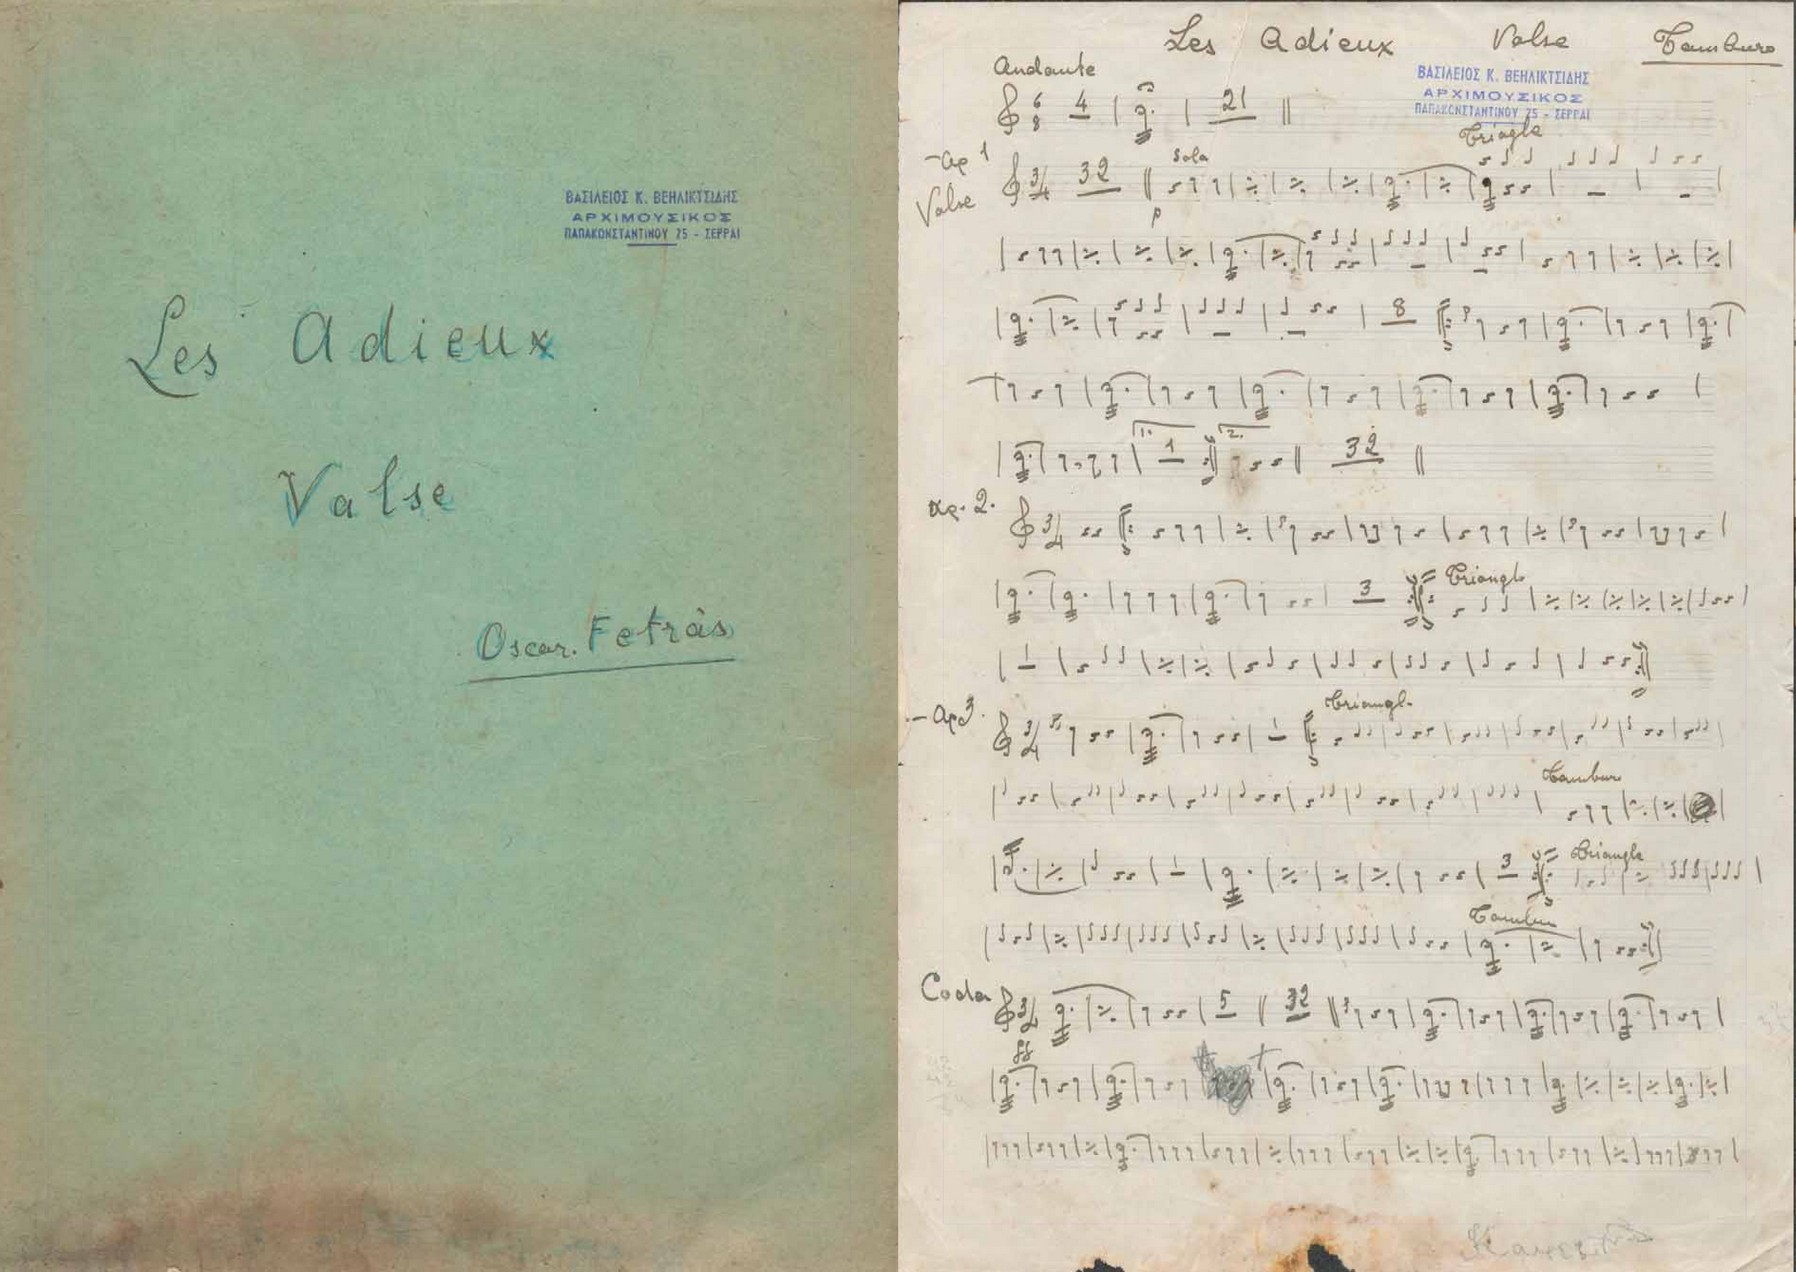 ΒΑΣΙΛΕΙΟΣ Κ. ΒΕΗΛΙΚΤΣΙΔΗΣ
ΑΡΧΙΜΟΥΣΙΚΟΣ
ΠΑΠΑΚΩΝΣΤΑΝΤΙΝΟΥ 25 - ΣΕΡΡΑΙ
Les Adieux
Valse
Oscar. Fetràs
Les Adieux Valse Tamburo
ΒΑΣΙΛΕΙΟΣ Κ. ΒΕΗΛΙΚΤΣΙΔΗΣ
ΑΡΧΙΜΟΥΣΙΚΟΣ
ΠΑΠΑΚΩΝΣΤΑΝΤΙΝΟΥ 25 - ΣΕΡΡΑΙ
Andante
6 8 4 21
Triagle
Αρ 1 Valse
3/4 32 Sola
p
8
1. 1 2. 32
Αρ. 2.
3/4
3 Triangl
Αρ 3.
3/4 Triangl.
Tambur
3 Triangle
Tambur
Coda
3/4 5 32
ff